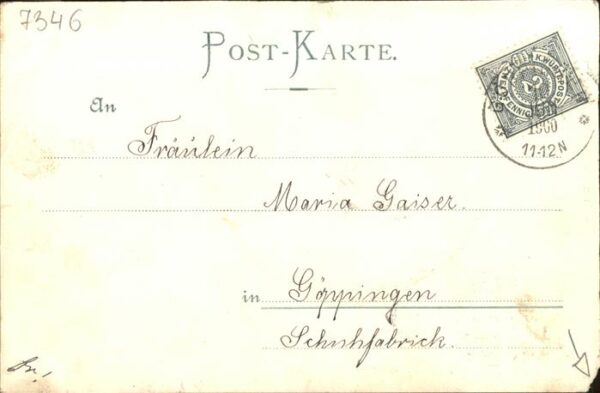 7346
POST-KARTE.
K.WÜRTT.POST
PFENNIG
2
1900
11-12 N
An
Fräulein
Maria Gaiser.
in Göppingen
Schuhfabrick.